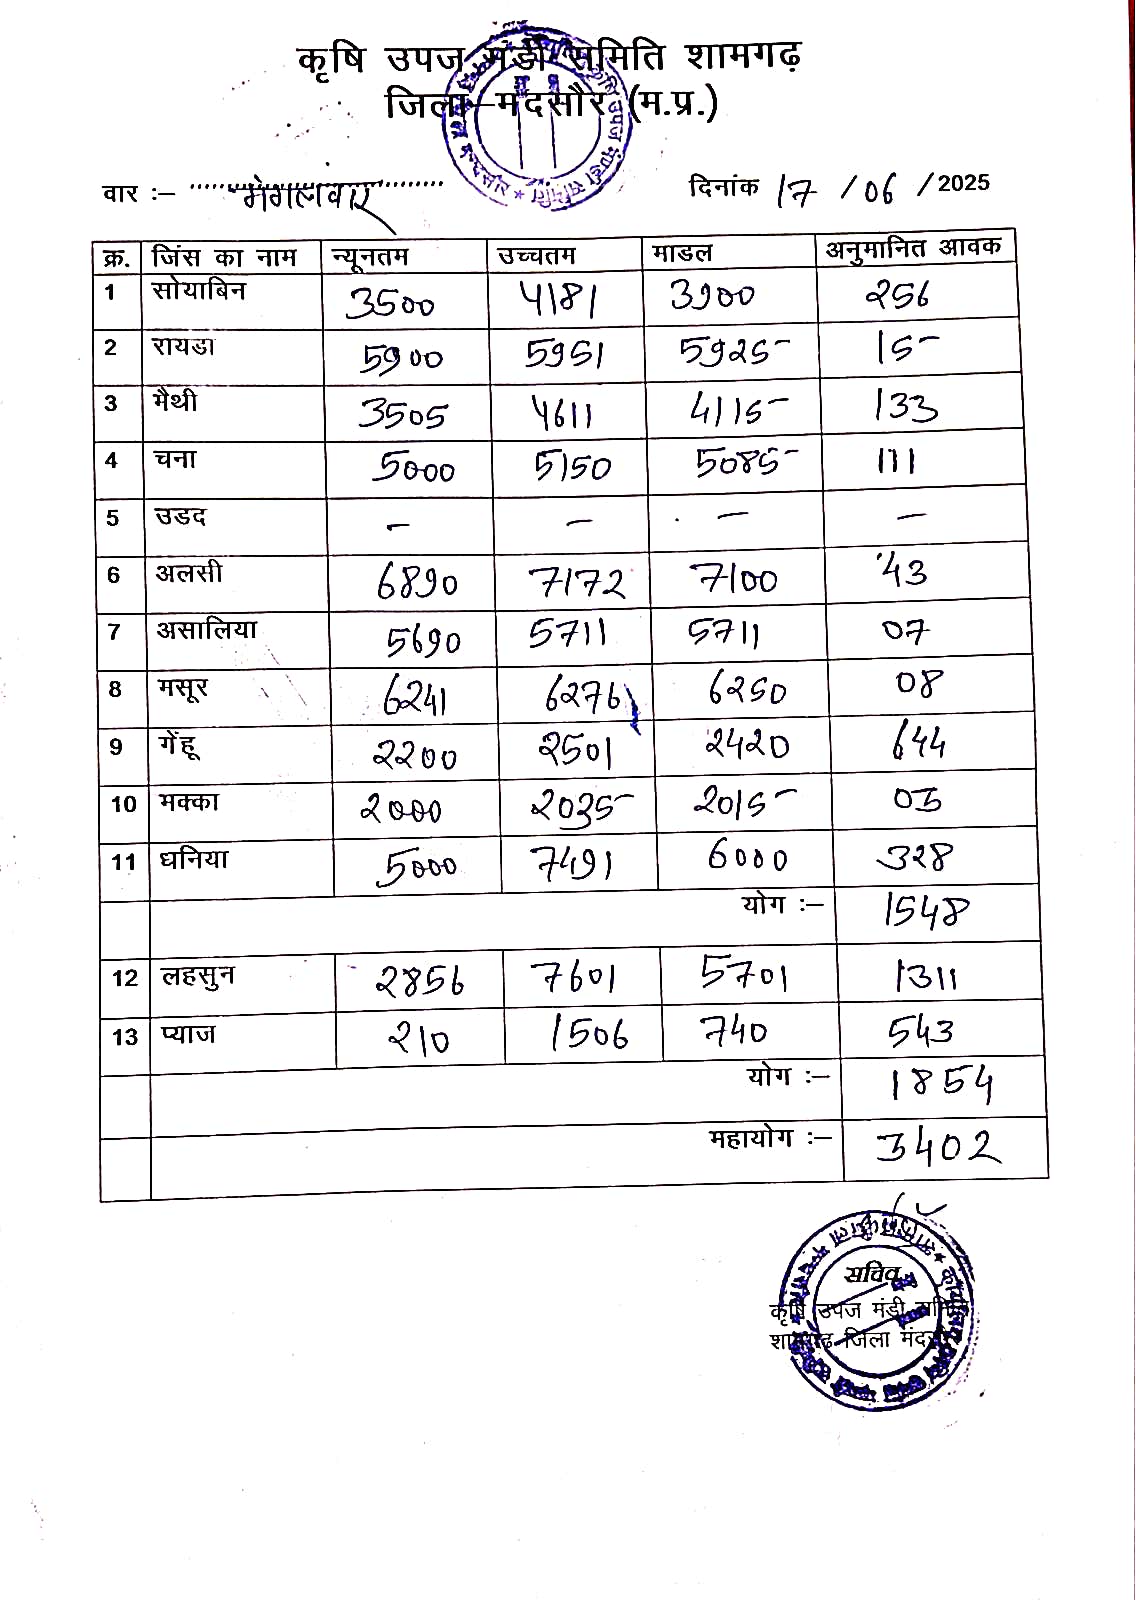 कृषि उपज मंडी समिति शामगढ़
जिला–मंदसौर (म.प्र.)
वार :– मंगलवार दिनांक 17 / 06 / 2025
क्र. जिंस का नाम न्यूनतम उच्चतम माडल अनुमानित आवक
1 सोयाबिन 3500 4181 3900 256
2 रायडा 5900 5951 5925 15
3 मैथी 3505 4611 4115 133
4 चना 5000 5150 5085 111
5 उडद – – – –
6 अलसी 6890 7172 7100 43
7 असालिया 5690 5711 5711 07
8 मसूर 6241 6276 6250 08
9 गेंहू 2200 2501 2420 644
10 मक्का 2000 2035 2015 03
11 धनिया 5000 7491 6000 328
योग :– 1548
12 लहसुन 2856 7601 5701 1311
13 प्याज 210 1506 740 543
योग :– 1854
महायोग :– 3402
सचिव
कृषि उपज मंडी समिति
शामगढ़ जिला मंदसौर